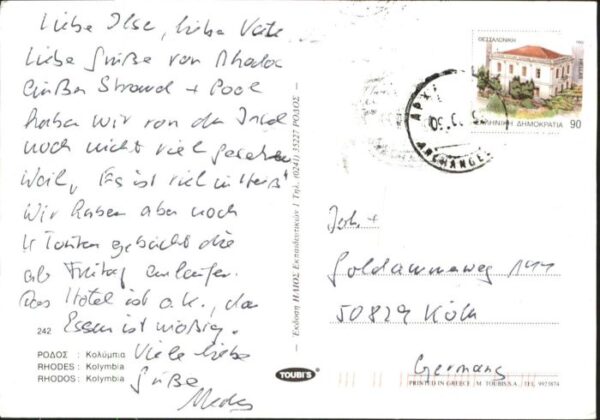 Liebe Ilse, liebe Väter
liebe Grüße von Rhodos
Außer Strand + Pool
haben wir von der Insel
noch nicht viel gesehen
Weil, "Es ist viel zu heiß"
Wir haben aber noch
4 Touren gebucht die
ab Freitag anlaufen.
Das Hotel ist o.k., das
Essen ist mäßig.
Viele liebe
Grüße
242
ΡΟΔΟΣ : Κολύμπια
RHODES : Kolymbia
RHODOS : Kolymbia
Έκδοση ΗΛΙΟΣ Εκπαιδευτικών 1 Τηλ. (0241) 35227 ΡΟΔΟΣ
TOUBI'S
ΘΕΣΣΑΛΟΝΙΚΗ
HELLAS
ΕΛΛΗΝΙΚΗ ΔΗΜΟΚΡΑΤΙΑ 90
Goldammerweg 144
50829 Köln
Germany
PRINTED IN GREECE M. TOUBIS S.A. TEL. 9923874